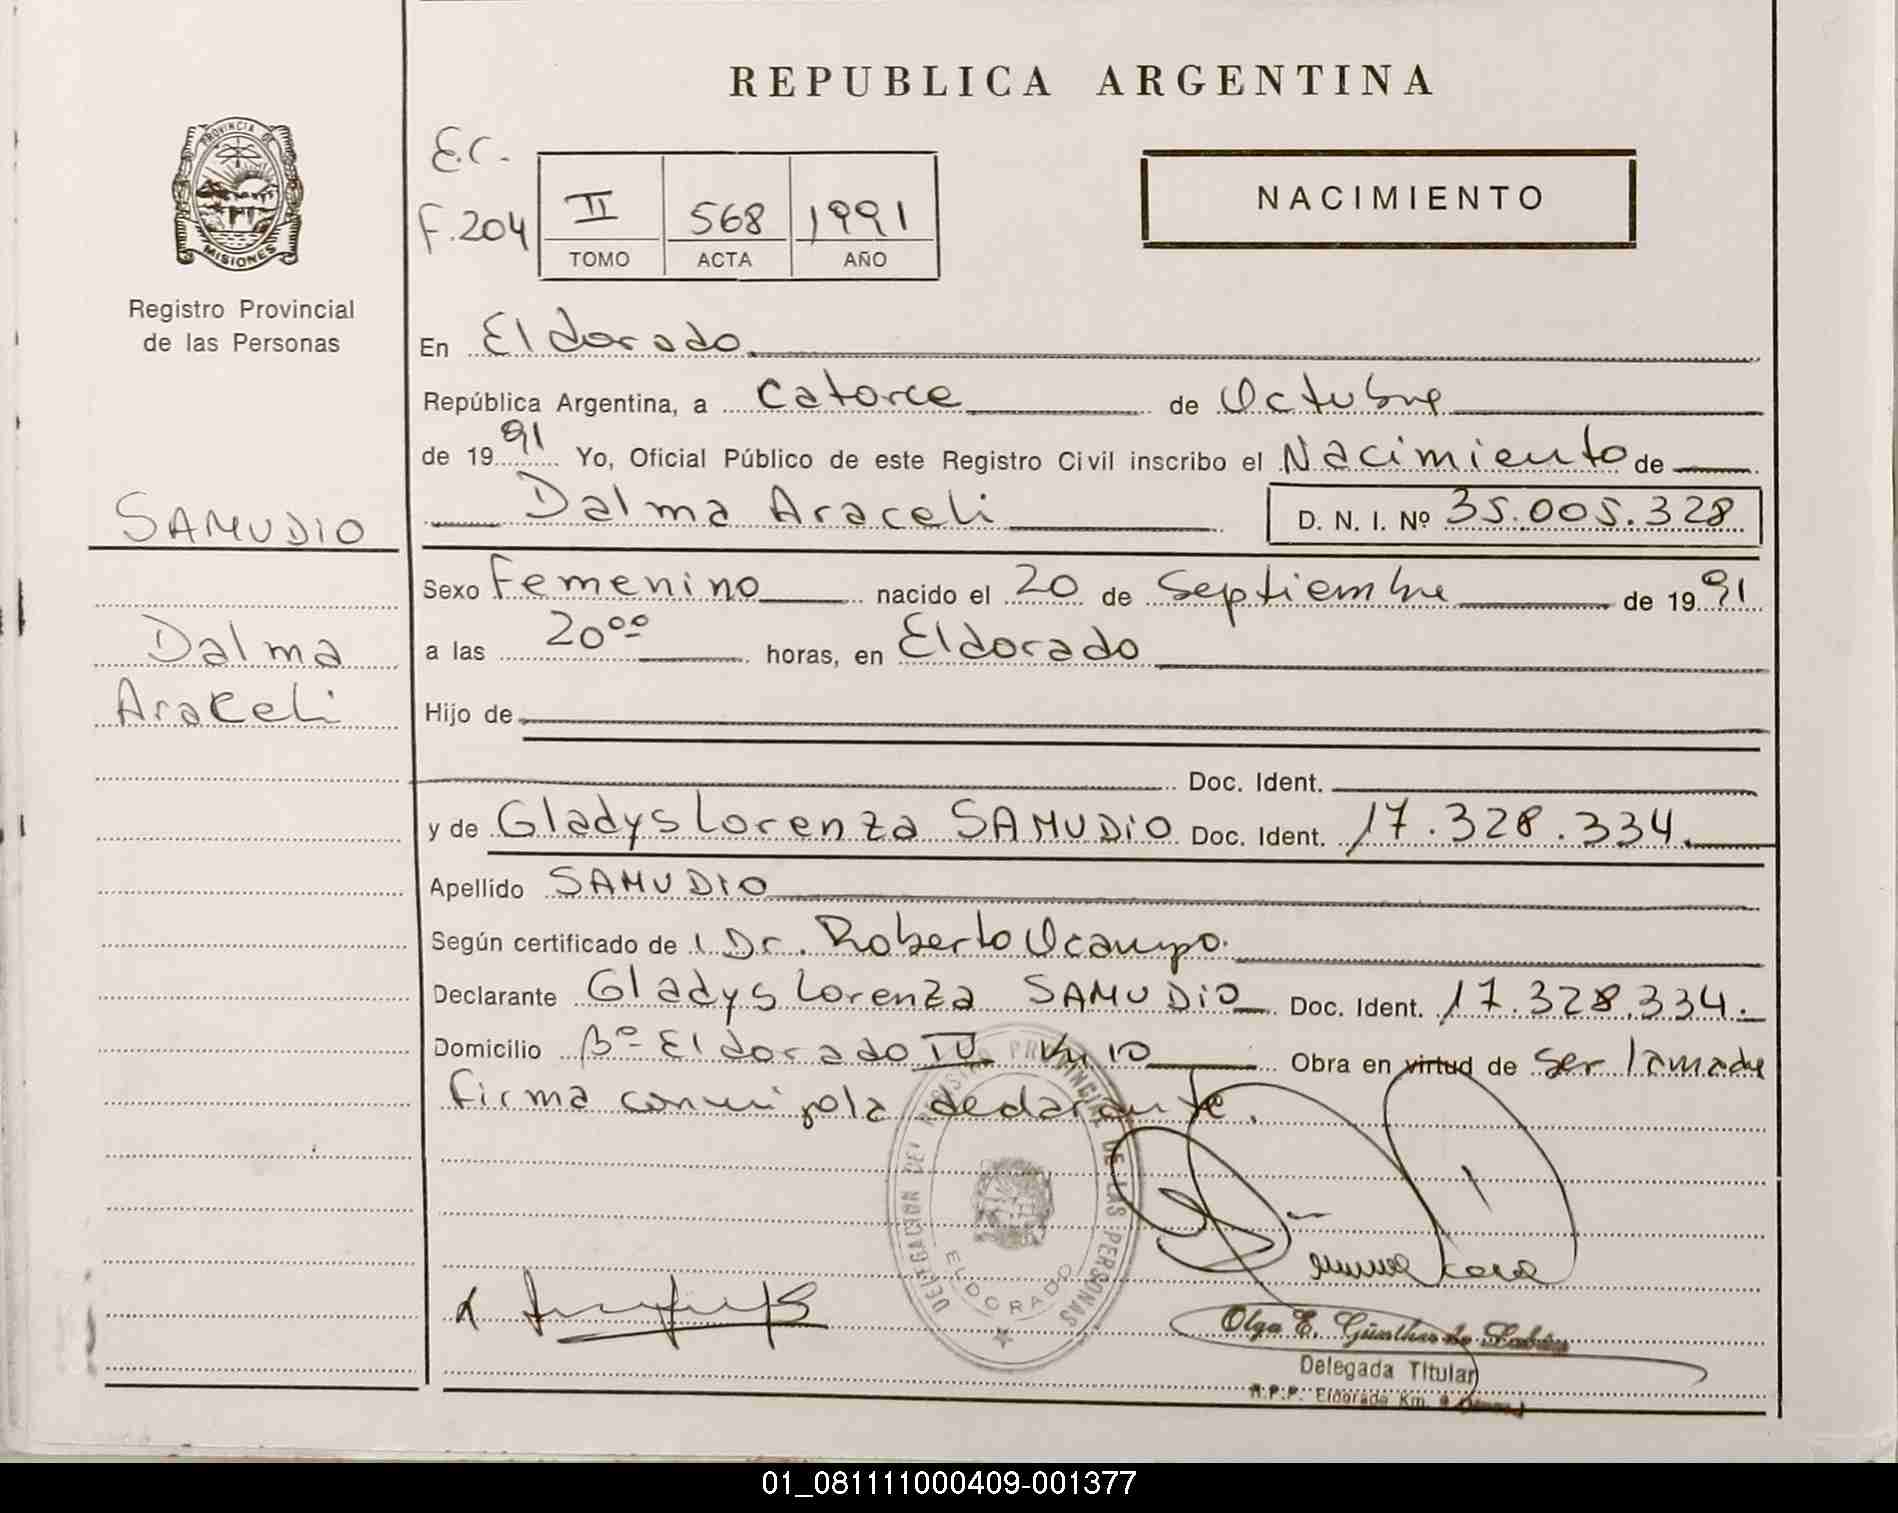 REPUBLICA ARGENTINA
PROVINCIA DE
MISIONES
Registro Provincial
de las Personas
E.C.
F.204
II 568 1991
TOMO ACTA AÑO
NACIMIENTO
En Eldorado
República Argentina, a Catorce de Octubre
de 1991 Yo, Oficial Público de este Registro Civil inscribo el Nacimiento de
Dalma Araceli D. N. I. Nº 35.005.328
SAMUDIO
Dalma
Araceli
Sexo Femenino nacido el 20 de Septiembre de 1991
a las 20oo horas, en Eldorado
Hijo de
Doc. Ident.
y de Gladys Lorenza SAMUDIO Doc. Ident. 17.328.334.
Apellido SAMUDIO
Según certificado de l Dr. Roberto Ocampo.
Declarante Gladys Lorenza SAMUDIO Doc. Ident. 17.328.334.
Domicilio Bº Eldorado IV Km 10 Obra en virtud de ser la madre
firma conmigo la declarante.
DELEGACION DEL REGISTRO PROVINCIAL DE LAS PERSONAS
ELDORADO
Olga E. Günther de
Delegada Titular
R.P.P. Eldorado Km. 9
01_081111000409-001377